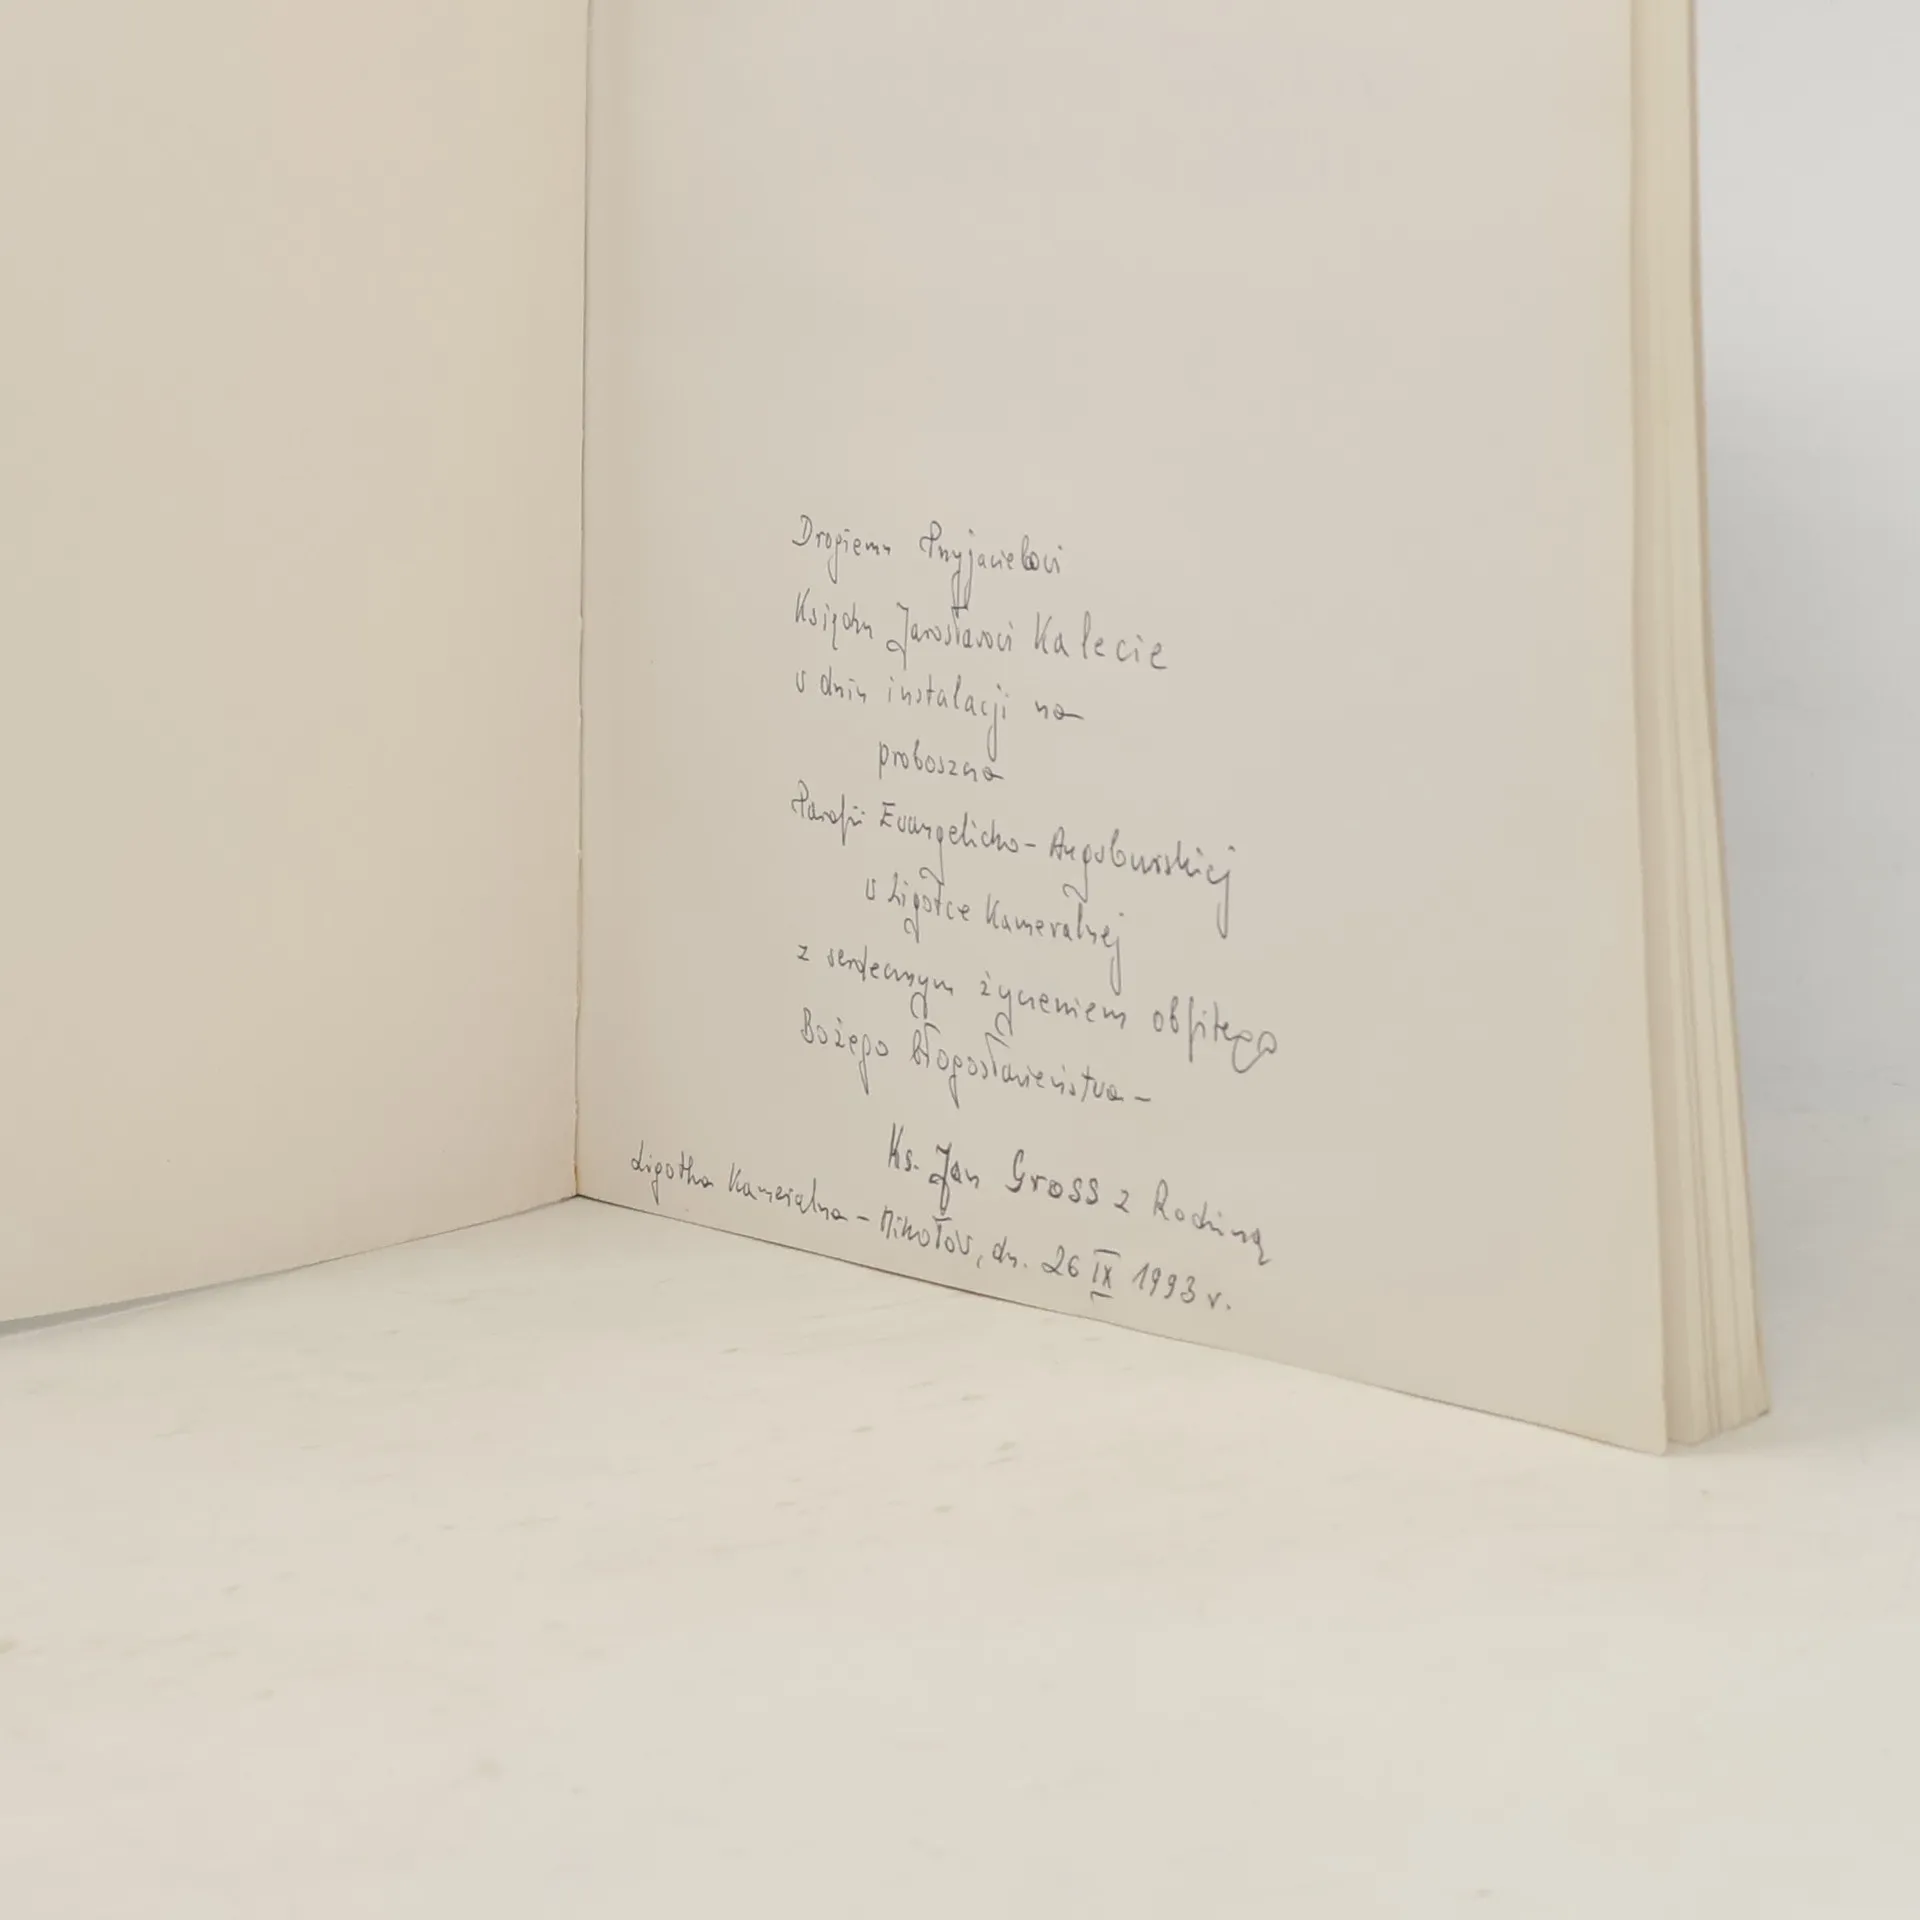 Drogiemu Przyjacielowi
Księdzu Jarosławowi Kalecie
w dniu instalacji na
proboszcza
Parafii Ewangelicko-Augsburskiej
w Ligotce Kameralnej
z serdecznym życzeniem obfitego
Bożego błogosławieństwa -
Ks. Jan Gross z Rodziną
Ligotka Kameralna - Mikołów, dn. 26 IX 1993 r.